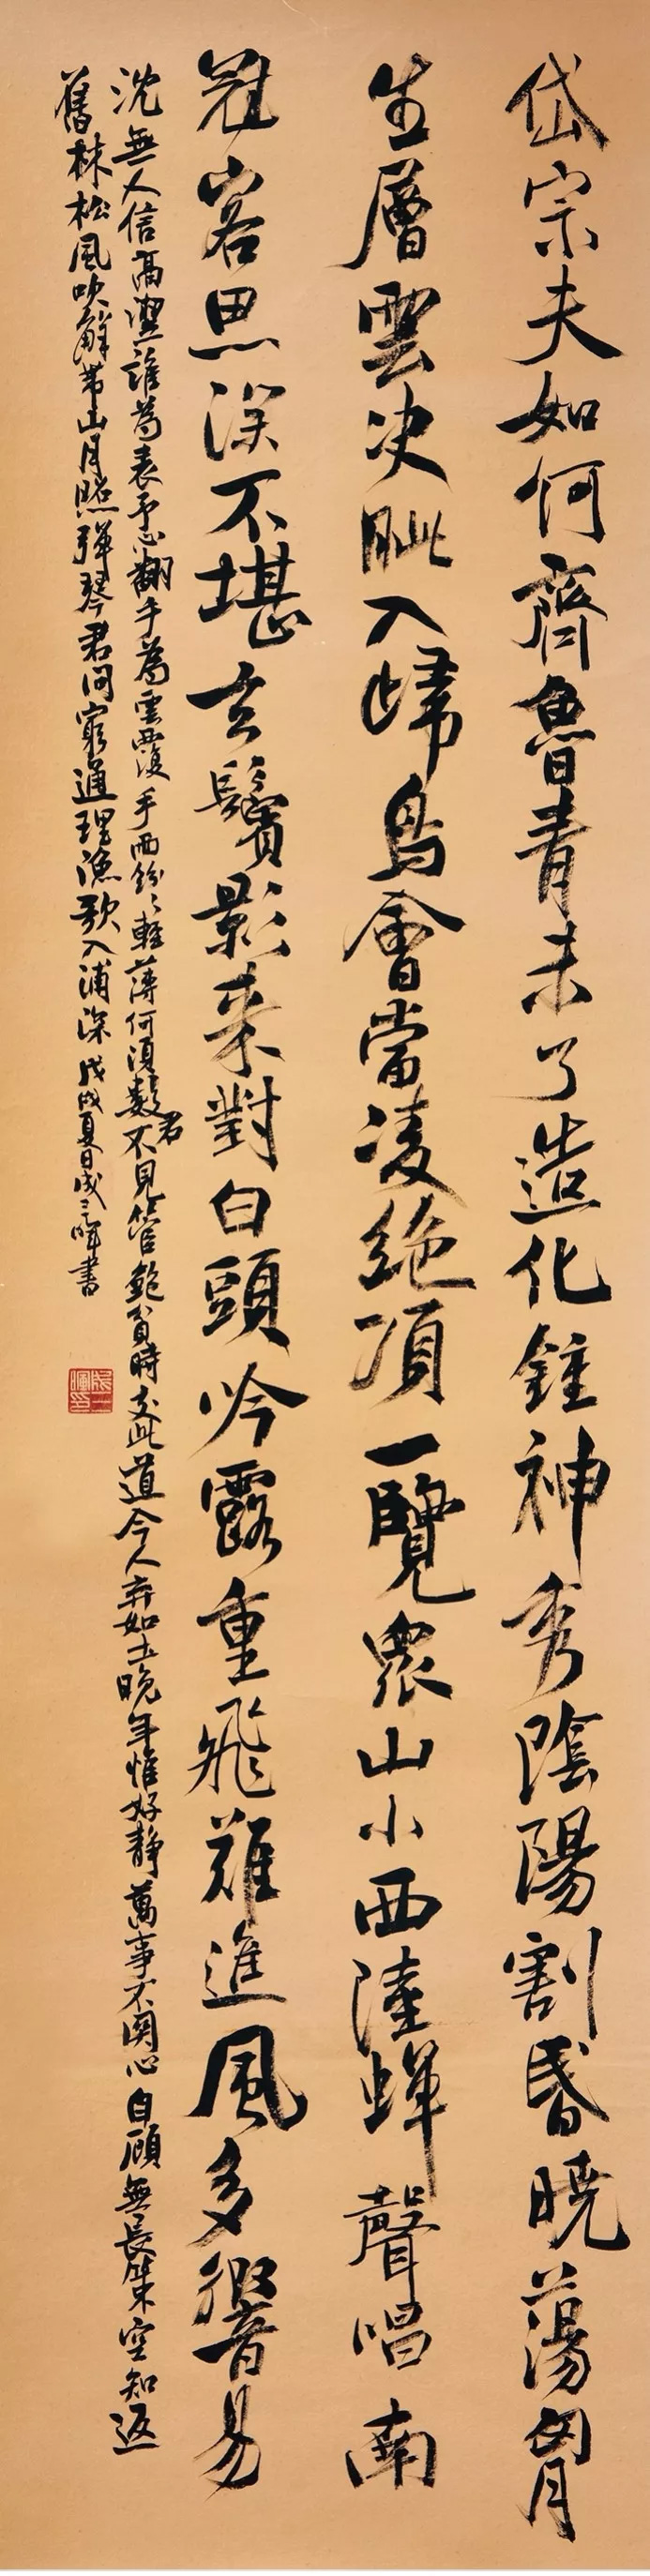 岱宗夫如何齊魯青未了造化鍾神秀陰陽割昏曉蕩胷
生層雲決眦入歸鳥會當凌絶頂一覽眾山小西陸蟬聲唱南
冠客思深不堪玄鬢影来對白頭吟露重飛難進風多響易
沈無人信高潔誰為表予心翻手為雲覆手雨紛紛輕薄何須數君不見管鮑貧時交此道今人棄如土晚年惟好静萬事不関心自顧無長策空知返
舊林松風吹解帶山月照彈琴君問窮通理漁歌入浦深戊戌夏日成三暉書